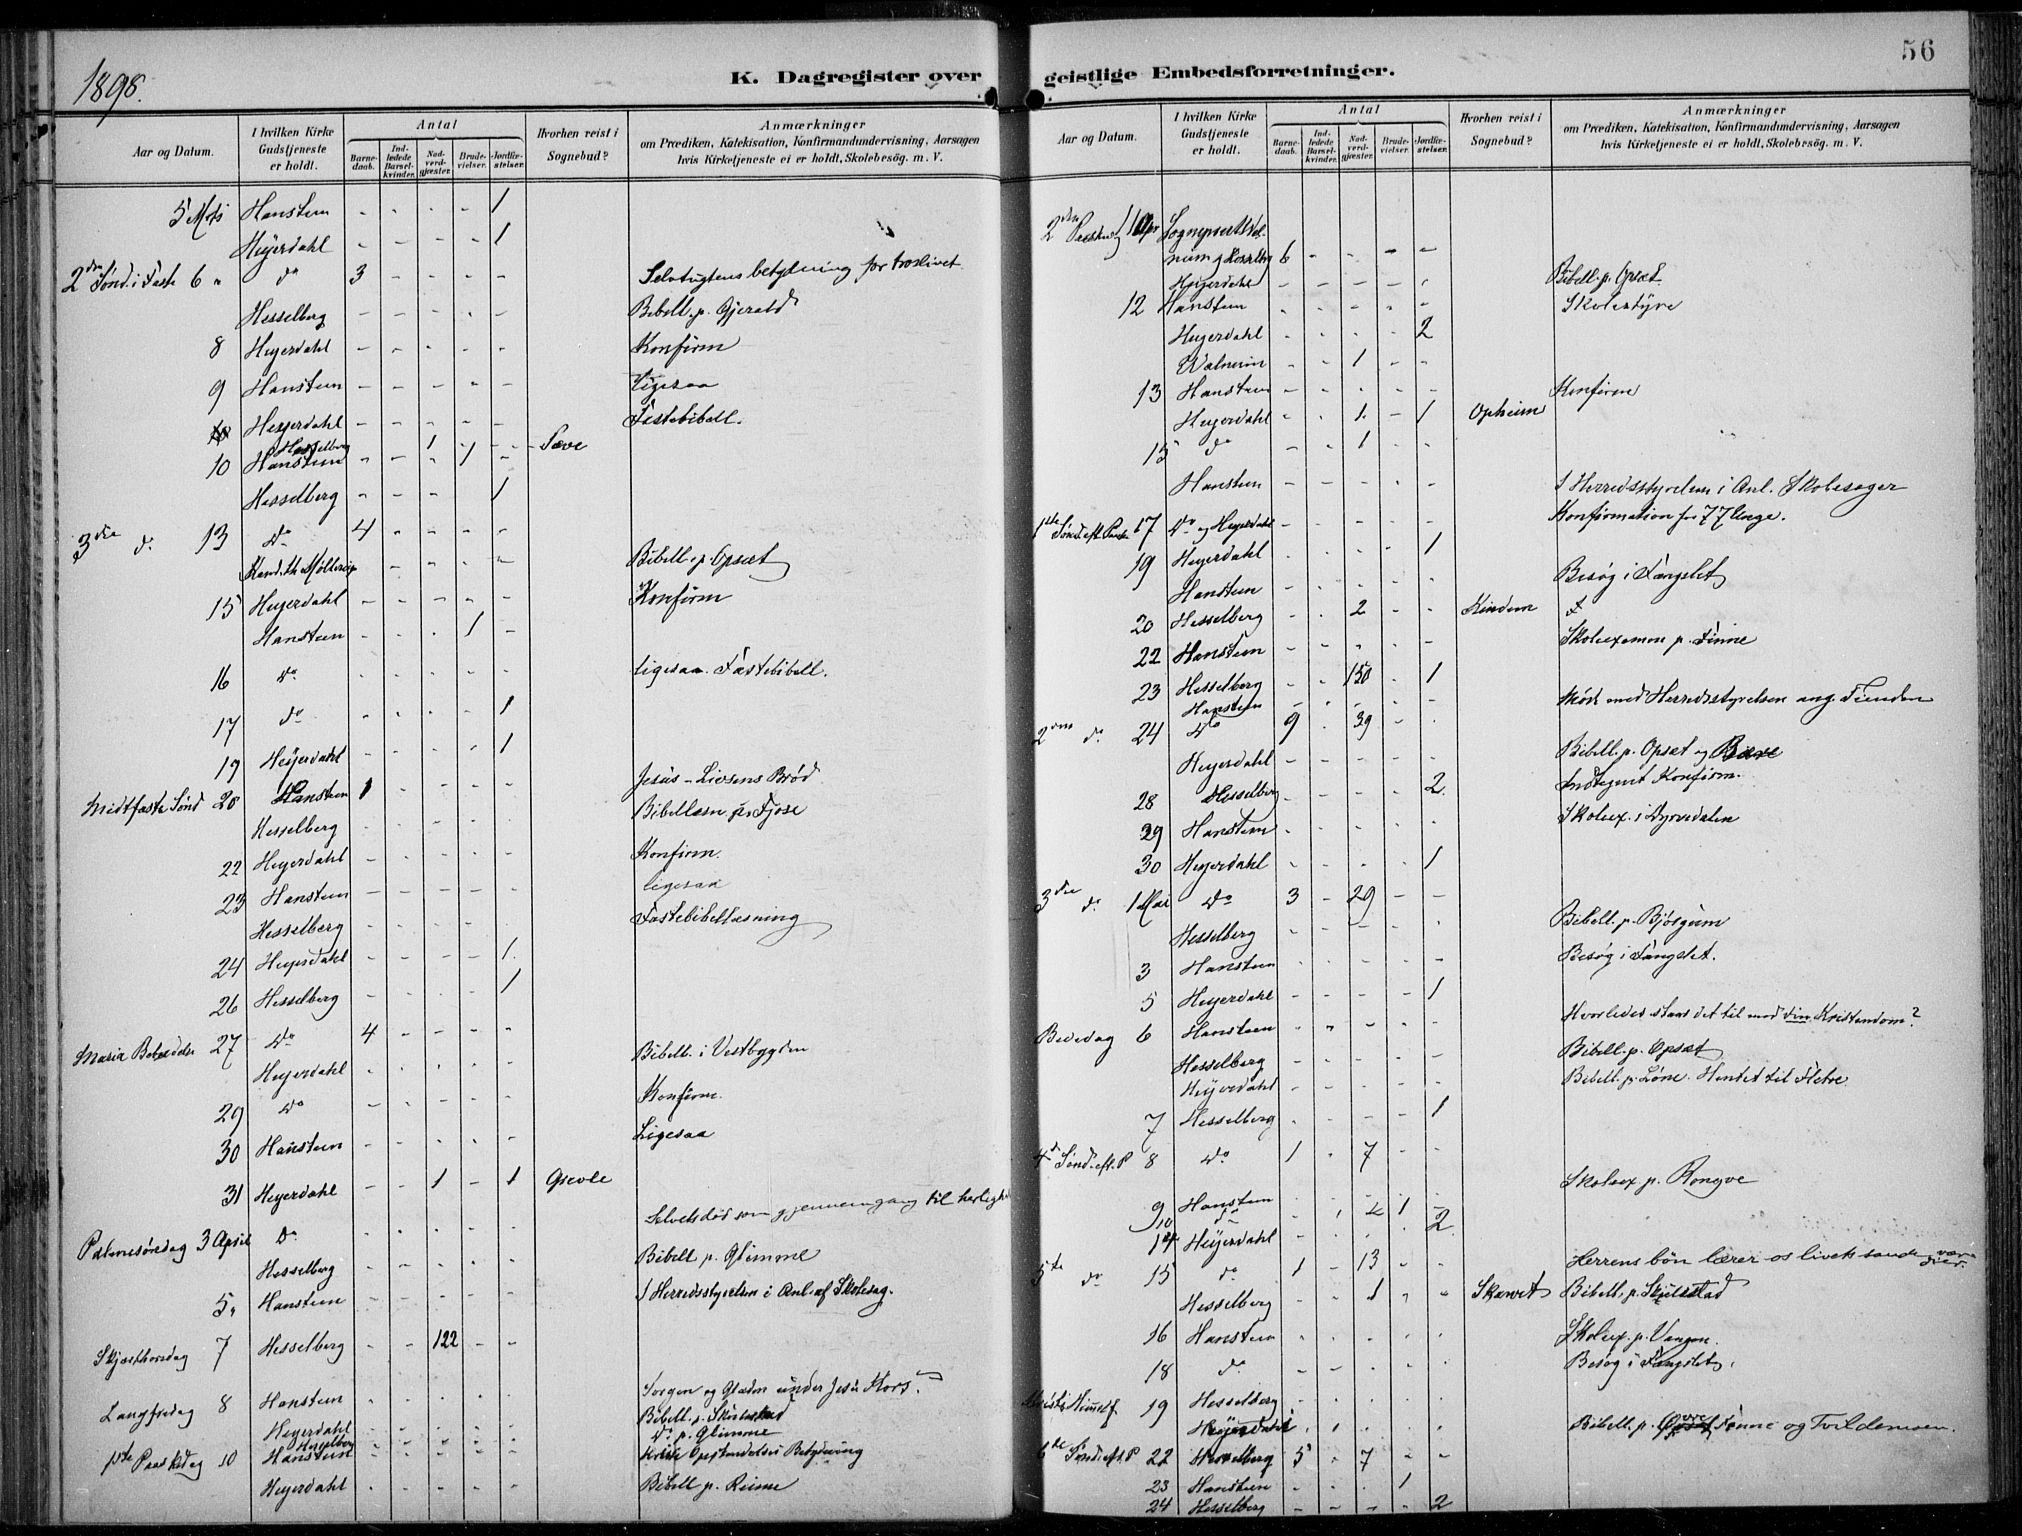 1898.
K. Dagregister over
Aar og Datum.
I hvilken Kirke Gudstjeneste er holdt.
Antal
Barnedaab.
Indledede Barselkvinder.
Nadverdgjæster.
Brudevielser.
Jordfæstelser.
Hvorhen reist i Sognebud?
Anmærkninger
om Prædiken, Katekisation, Konfirmandundervisning, Aarsagen
hvis Kirketjeneste ei er holdt, Skolebesög. m. V.
5 Mrts Hansteen - - - - 1
Heyerdahl - - - - 1
2den Sønd. i Faste 6 " do 3 - - - - Selvtugtens betydning for troslivet
Hesselberg - - - - - Bibell. p. Gjerald
8 Heyerdahl - - - - - Konfirm
9 Hansteen - - - - - ligesaa
Heyerdahl - - - - - Fastebibell.
Hesselberg 1 - - - Sæve
10 Hansteen - - - 1 -
Hesselberg - - - - 1
3die do 13 do 4 - - - -
Kand. th. Møllerop - - - - Bibell. p. Opsæt
15 Heyerdahl - - - - - Konfirm
Hansteen - - - 1 -
16 do - - - - - ligesaa. Fastebibell.
17 do - - - - 1
19 Heyerdahl - - - - 1
Midtfaste Sønd 20 Hansteen 1 - - - - Jesus - Livsens Brød
Hesselberg - - - - - Bibellæsn. p. Fjose
22 Heyerdahl - - - - - Konfirm.
23 Hansteen - - - - - ligesaa
Hesselberg - - - - - Fastebibellæsning
24 Heyerdahl - - - - 1
26 Hesselberg - - - - 1
Maria Bebudelse 27 do 4 - - - -
Heyerdahl - - - - - Bibell. i Vestbygden
29 do - - - - - Konfirm.
30 Hansteen - - - - - Ligesaa
31 Heyerdahl - - 1 - 1 Græve
Palmesøndag 3 April do - - - - - Selvets død som gjennemgang til herlighed
Hesselberg - - - - - Bibell p. Glimme
5. Hansteen - - - - - I Herredsstyrelsen i Anl. af Skolesag.
Skjærthorsdag 7 Hesselberg - - 122 - -
Langfredag 8 Hansteen - - - - - Sorgen og Glæden under Jesu Kors.
Heyerdahl - - - - - Bibell. p. Skulestad
Hesselberg - - - - - do p. Glimme
1ste Paaskedag 10 Hansteen - - - - - Kristi Opstandelses Betydning
Heyerdahl - - - - - Bibell p. Reime
56
geistlige Embedsforretninger.
Aar og Datum.
I hvilken Kirke Gudstjeneste er holdt.
Antal
Barnedaab.
Indledede Barselkvinder.
Nadverdgjæster.
Brudevielser.
Jordfæstelser.
Hvorhen reist i Sognebud?
Anmærkninger
om Prædiken, Katekisation, Konfirmandundervisning, Aarsagen
hvis Kirketjeneste ei er holdt, Skolebesög. m. V.
2den Paaskedag 11 Apr
og Hesselberg 6 - - - -
Heyerdahl - - - - - Bibell. p. Opsæt
12 Hansteen - - - - - Skolestyre
Heyerdahl - - - - 2
- - 1 - -
13 Hansteen - - - - - Konfirm
Heyerdahl - - 1 - 1 Opheim
15 do - - 1
Hansteen - - - - - I Herredsstyrelsen i Anl. Skolesager
1ste Sønd. eft. Paaske 17 do og Heyerdahl - - - - - Konfirmation for 77 Unge.
19 Heyerdahl - - - - 1
Hansteen - - - - - Besøg i Fængslet
20 Hesselberg - - 2 - - Kindem
22 Hansteen - - - - - Skoleexamen p. Finne
23 Hesselberg - - 150 - 1
Hansteen - - - - - Møde med Herredsstyrelsen ang. Tienden
2den do 24 do 9 - 39 - -
Heyerdahl - - - - - Bibell. p. Opsæt og
28 Hesselberg - - - - 2 Indtegnet Konfirm.
29 Hansteen - - - - - Skoleex. i Dyrvedalen
30 Heyerdahl - - - - 1
3die do 1 Mai do 3 - 29 - -
Hesselberg - - - - - Bibell. p. Bjørgum
3 Hansteen - - - - - Besøg i Fængslet.
5 Heyerdahl - - - - 1
Bededag 6 Hansteen - - - - - Hvorledes staar det til med din Kristendom?
Hesselberg - - - - - Bibell. p. Opsæt
Heyerdahl - - - - - Bibell. p. Løne. Hentet til Fletre
7 Hesselberg - - - - 1
4d Sønd. eft. P 8 do 1 - 7 - -
9 Hansteen - - - 1 - Skoleex p. Rongve
10 do 2
14 Heyerdahl - - - -
5te do 15 do 1 - 13 - - Herrens bøn lærer os livets sande værdier.
Hesselberg - - 1 - - Skærvet Bibell. p. Skulestad
16 Hansteen - - - - - Skoleex. p. Vangen.
18 do - - - - - Besøg i Fængslet.
Kristi Himmelf. 19 Hesselberg - - - - -
Heyerdahl - - - - - Bibell. p. Finne og Tvildemoen.
6te Sønd. eft. P 22 Hesselberg 5 - 7 - -
23 Hansteen 1
24 Hesselberg - - - - 2